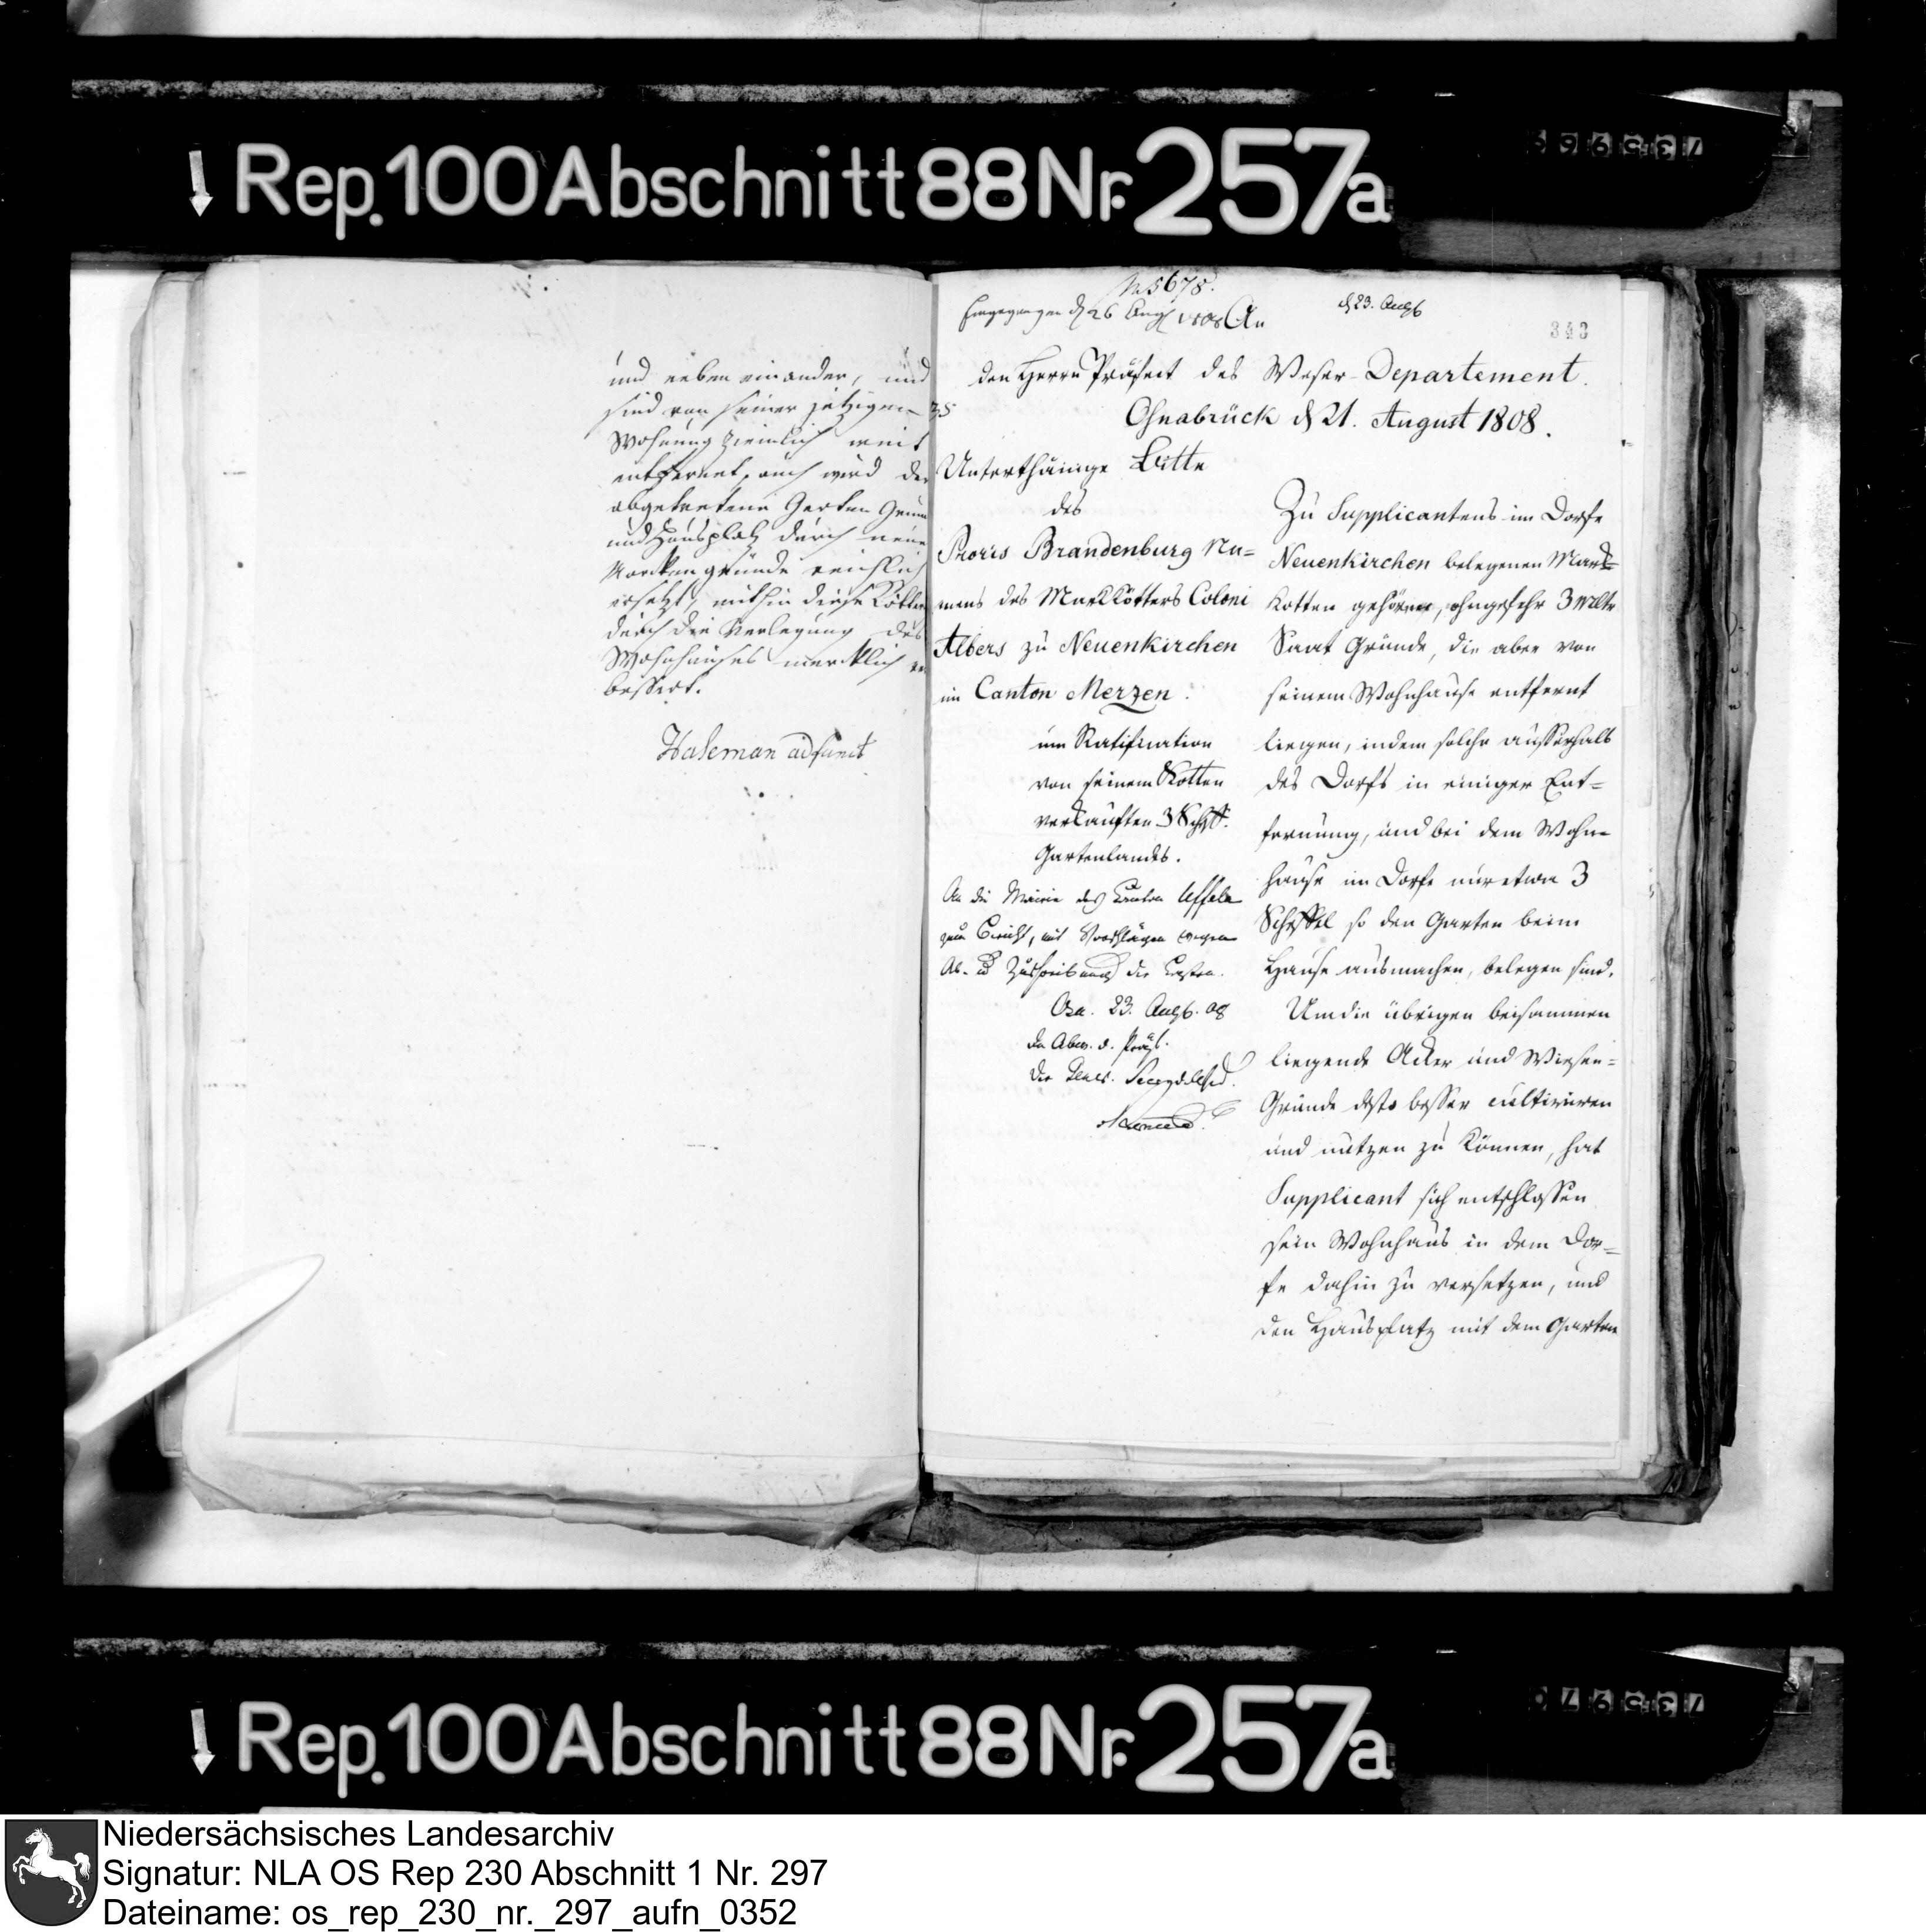 Rep.100Abschnitt88Nr.257a
und neben einander, und
sind von seiner jetzigen
Wohnung ziemlich weit
entfernet, auch wird der
abgetretene Garten Grund
und Hausplatz durch neue
Marken gründe reichlich
ersetzt, mithin diese Kötterey
durch die Verlegung des
Wohnhauses mercklich ver
bessert.
Haleman adjunct
No 5678.
Eingegangen d 26 Aug 1808
d 23. Aug
343
An
den Herrn Präfect des Weser-Departement.
Osnabrück d 21. August 1808.
Unterthänige Bitte
des
Procuris Brandenburg Na=
mens des Markkötters Coloni
Albers zu Neuenkirchen
im Canton Merzen.
um Ratification
von seinem Kotten
verkauften 3 Schffl.
Gartenlandes.
An die Mairie des Canton Uffeln
zum Bericht, mit Vorschlägen wegen
Ab- und Zuschreibung der Lasten.
Osn. 23. Aug. 08
In Abw. d. Präf.
Der Gener. Secr.
Zu Supplicantens im Dorfe
Neuenkirchen belegenen Mark-
Kotten gehören, ohngefehr 3 Mltr
Saat Gründe, die aber von
seinem Wohnhause entfernt
liegen, indem solche ausserhalb
des Dorfs in einiger Ent=
fernung, und bei dem Wohn-
hause im Dorfe nur etwa 3
Scheffel so den Garten beim
Hause ausmachen, belegen sind.
Um die übrigen beisammen
liegende Acker und Wiesen=
Gründe desto besser cultiviren
und nutzen zu können, hat
Supplicant sich entschlossen
sein Wohnhaus in dem Dor=
fe dahin zu versetzen, und
den Hausplatz mit dem Garten
Rep.100Abschnitt88Nr.257a
Niedersächsisches Landesarchiv
Signatur: NLA OS Rep 230 Abschnitt 1 Nr. 297
Dateiname: os_rep_230_nr._297_aufn_0352